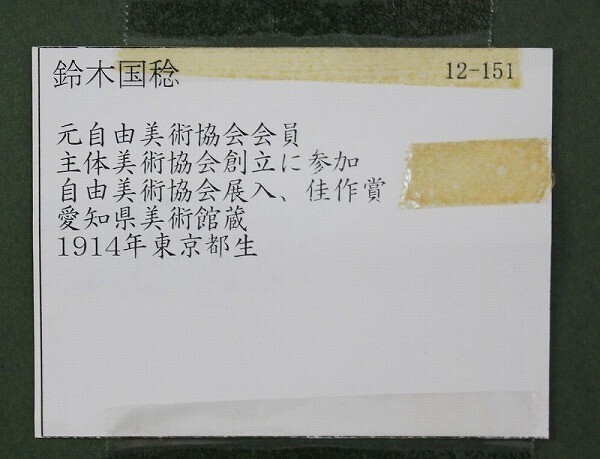 鈴木国稔
12-151
元自由美術協会会員
主体美術協会創立に参加
自由美術協会展入、佳作賞
愛知県美術館蔵
1914年東京都生